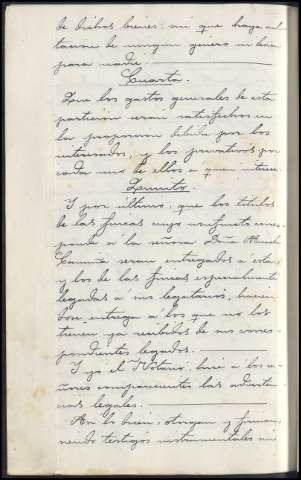 de dichos bienes: ni que haga mu-
tacion de ningun genero ni bien
para nadie.
Cuarta.
Que los gastos generales de esta
particion seran satisfechos en
la proporcion debida por los
interesados, y los privativos por
cada uno de ellos a quien interese.
Quinto.
Y por último, que los titulos
de las fincas cuyo usufructo corres-
ponde a la señora Doña
seran entregados a esta
y los de las fincas especialmente
legadas a sus legatarios, hacien-
dose entrega a los que no los
tienen ya recibidos de sus corres-
pondientes legados.
Y yo el Notario, hice a los se-
ñores comparecientes las adverten-
cias legales.
Asi lo bien, otorgan y firman,
siendo testigos instrumentales